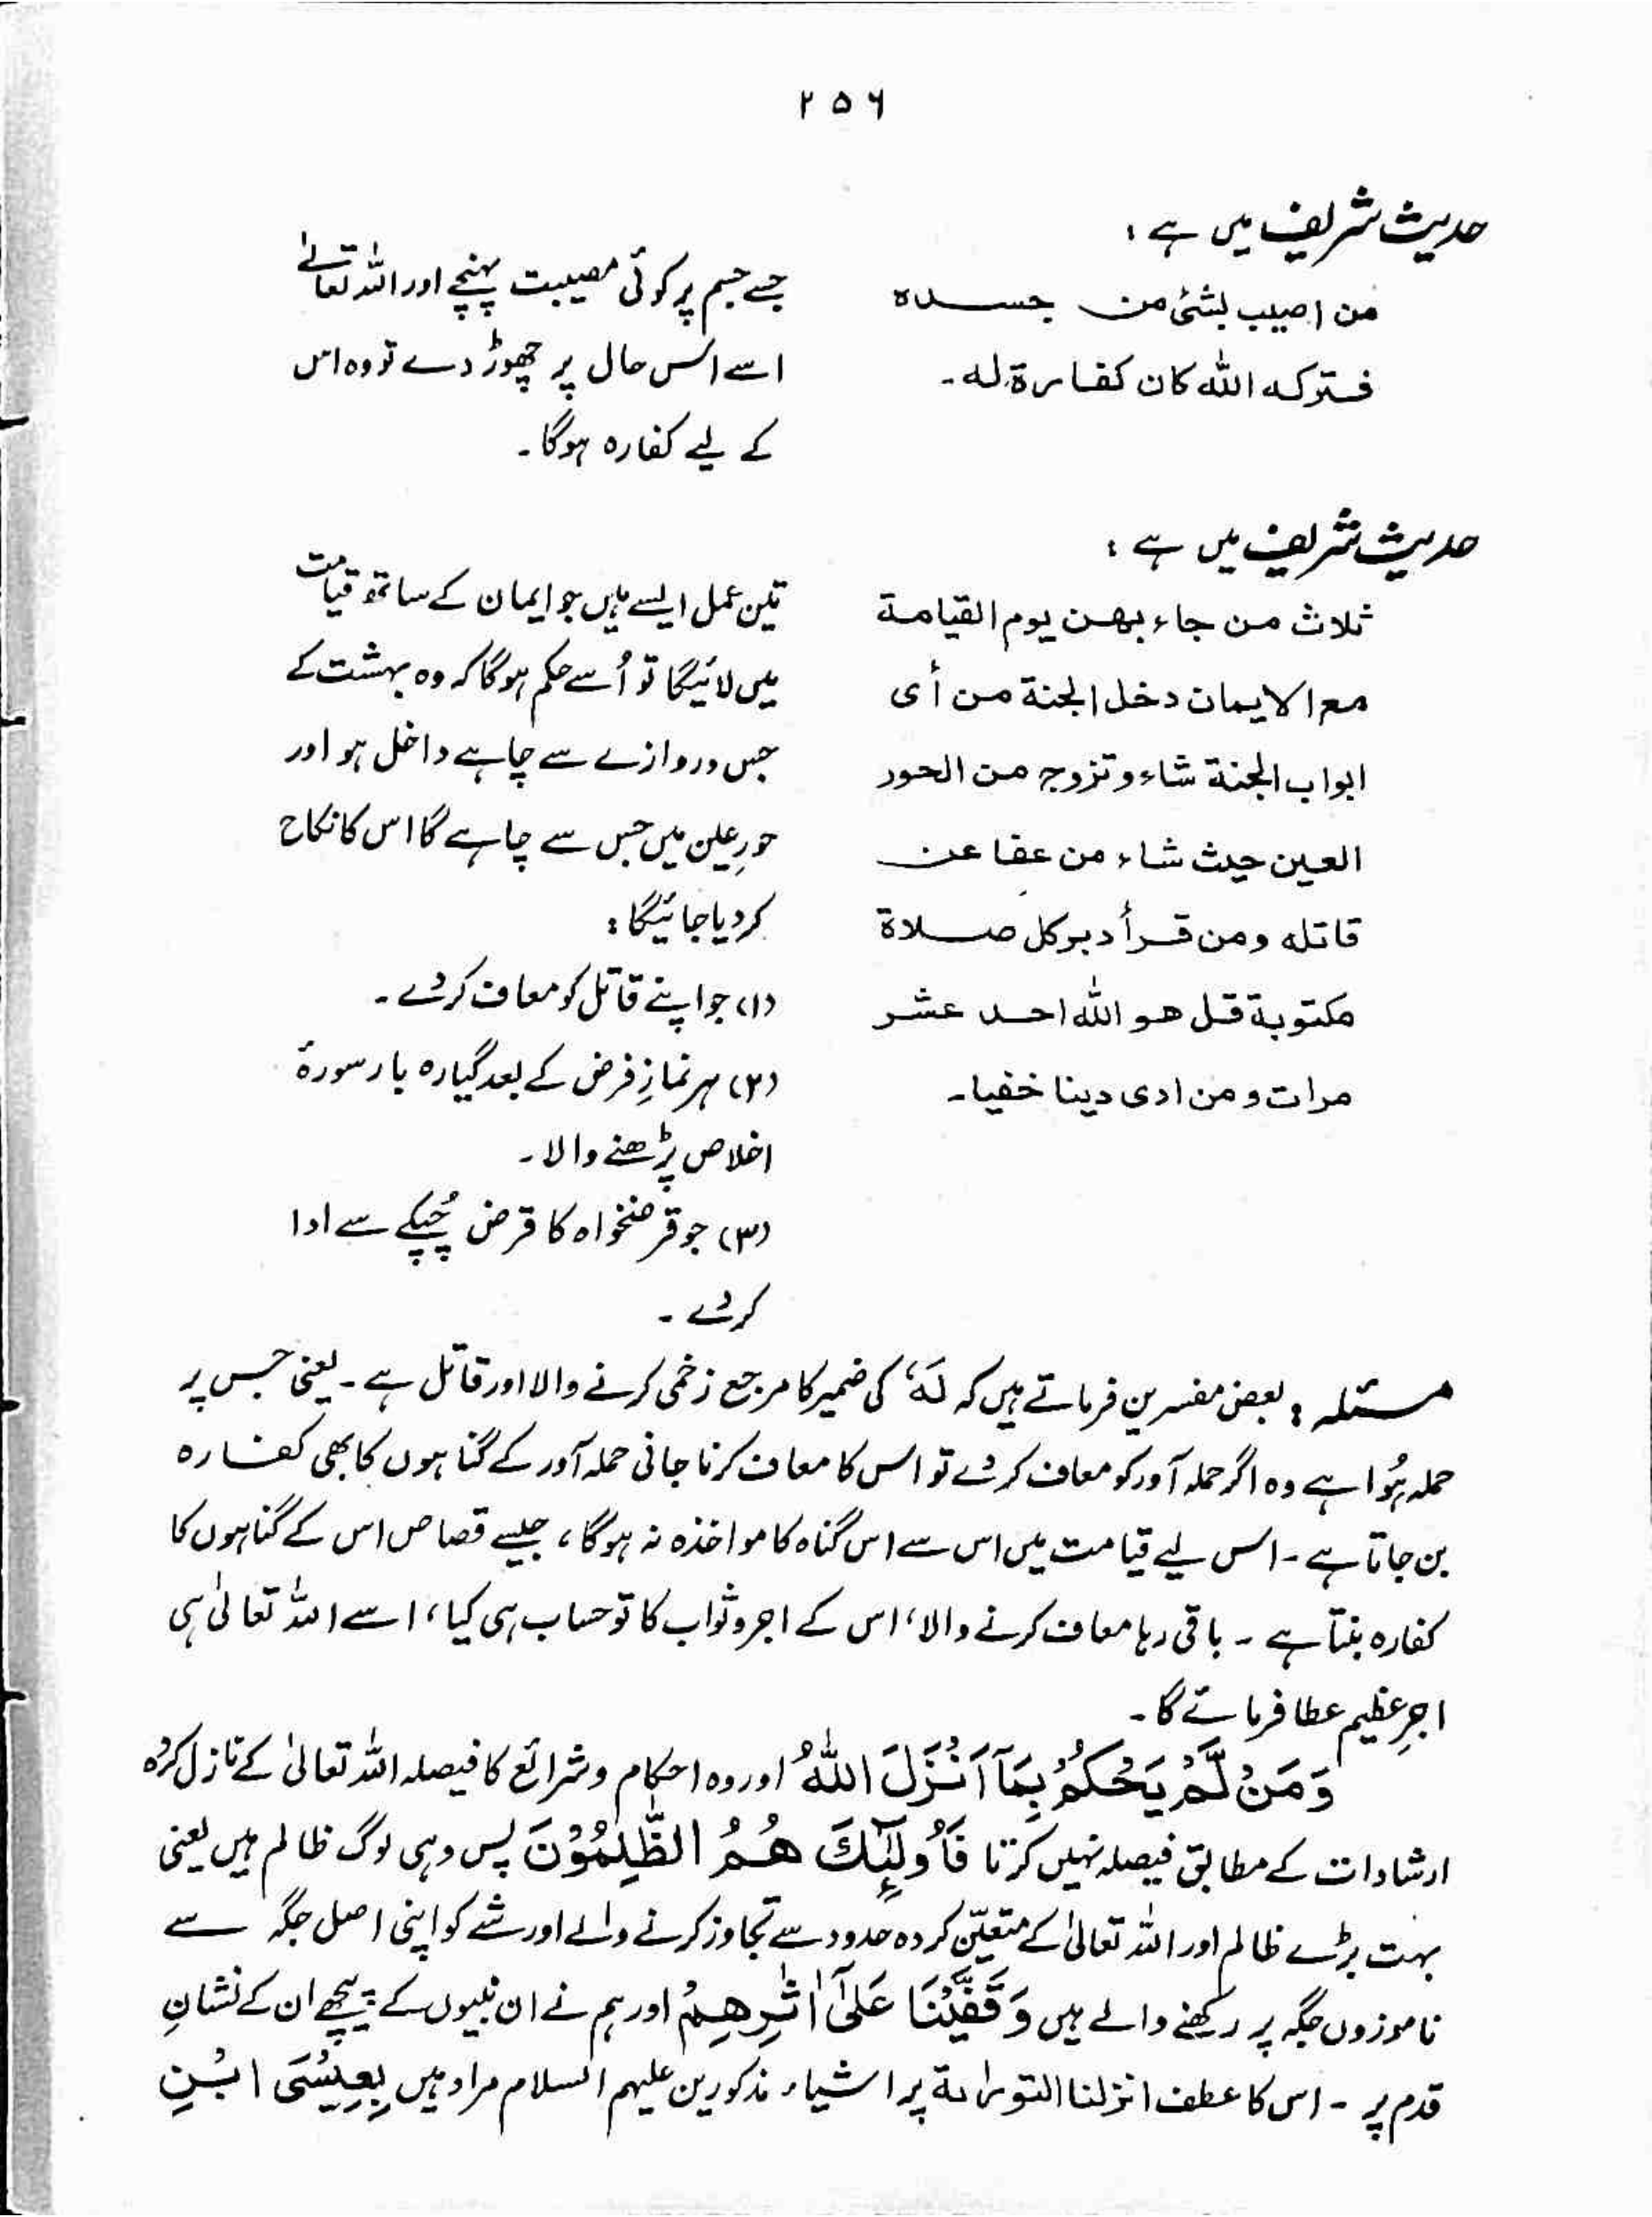 ۲۵۶
حدیث شریف میں ہے :
من اصیب بشئ من جسدہ
فترکہ اللہ کان کفارۃ لہ۔
جسے جسم پر کوئی مصیبت پہنچے اور اللہ تعالےٰ
اسے اس حال پر چھوڑ دے تو وہ اس
کے لیے کفارہ ہوگا۔
حدیث شریف میں ہے :
ثلاث من جاء بھن یوم القیامۃ
مع الایمان دخل الجنۃ من أی
ابواب الجنۃ شاء و تزوج من الحور
العین حیث شاء من عفا عن
قاتلہ ومن قرأ دبر کل صلاۃ
مکتوبۃ قل ھو اللہ احد عشر
مرات ومن ادی دینا خفیا۔
تین عمل ایسے ہیں جو ایمان کے ساتھ قیامت
میں لائیگا تو اُسے حکم ہوگا کہ وہ بہشت کے
جس دروازے سے چاہے داخل ہو اور
حورِعین میں جس سے چاہے گا اس کا نکاح
کردیا جائیگا :
(۱) جو اپنے قاتل کو معاف کردے۔
(۲) ہر نمازِ فرض کے بعد گیارہ بار سورۂ
اخلاص پڑھنے والا۔
(۳) جو قرضخواہ کا قرض چُپکے سے ادا
کردے۔
مسئلہ : بعض مفسرین فرماتے ہیں کہ لَہٗ کی ضمیر کا مرجع زخمی کرنے والا اور قاتل ہے۔ یعنی جس پر
حملہ ہُوا ہے وہ اگر حملہ آور کو معاف کردے تو اس کا معاف کرنا جانی حملہ آور کے گناہوں کا بھی کفارہ
بن جاتا ہے۔ اس لیے قیامت میں اس سے اس گناہ کا مواخذہ نہ ہوگا، جیسے قصاص اس کے گناہوں کا
کفارہ بنتا ہے۔ باقی رہا معاف کرنے والا، اس کے اجر و ثواب کا تو حساب ہی کیا، اسے اللہ تعالیٰ ہی
اجرِ عظیم عطا فرمائے گا۔
وَمَنْ لَّمْ يَحْكُمْ بِمَآ اَنْزَلَ اللّٰهُ اور وہ احکام و شرائع کا فیصلہ اللہ تعالیٰ کے نازل کردہ
ارشادات کے مطابق فیصلہ نہیں کرتا فَاُولٰٓئِكَ هُمُ الظّٰلِمُوْنَ پس وہی لوگ ظالم ہیں یعنی
بہت بڑے ظالم اور اللہ تعالیٰ کے متعیّن کردہ حدود سے تجاوز کرنے والے اور شے کو اپنی اصل جگہ سے
ناموزوں جگہ پر رکھنے والے ہیں وَقَفَّيْنَا عَلٰٓى اٰثَرِهِمْ اور ہم نے ان نبیوں کے پیچھے ان کے نشانِ
قدم پر ۔ اس کا عطف انزلنا التوراۃ پر اشیاء مذکورین علیہم السلام مراد ہیں بِعِيْسَى ابْنِ